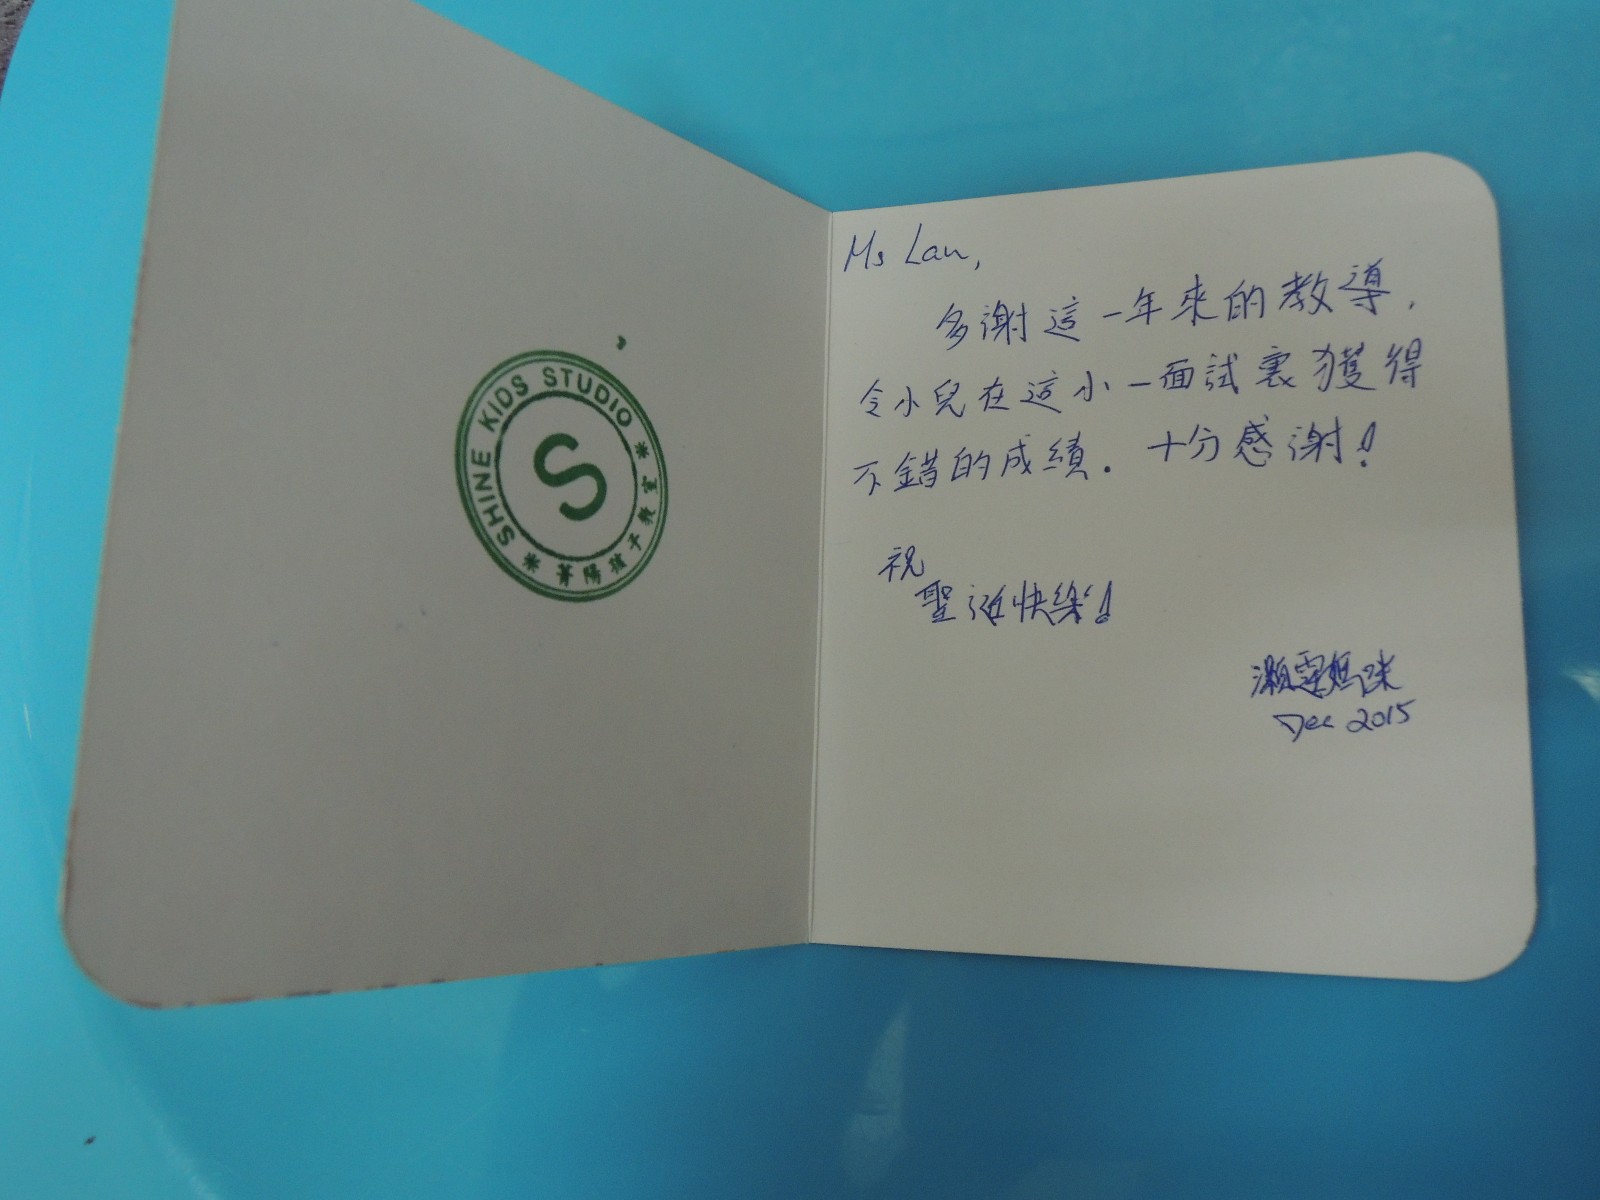 SHINE KIDS STUDIO
S
菁陽孩子教室
Ms Lau,
多謝這一年來的教導,
令小兒在這小一面試裏獲得
不錯的成績. 十分感謝!
祝
聖誕快樂!
灝霆媽咪
Dec 2015